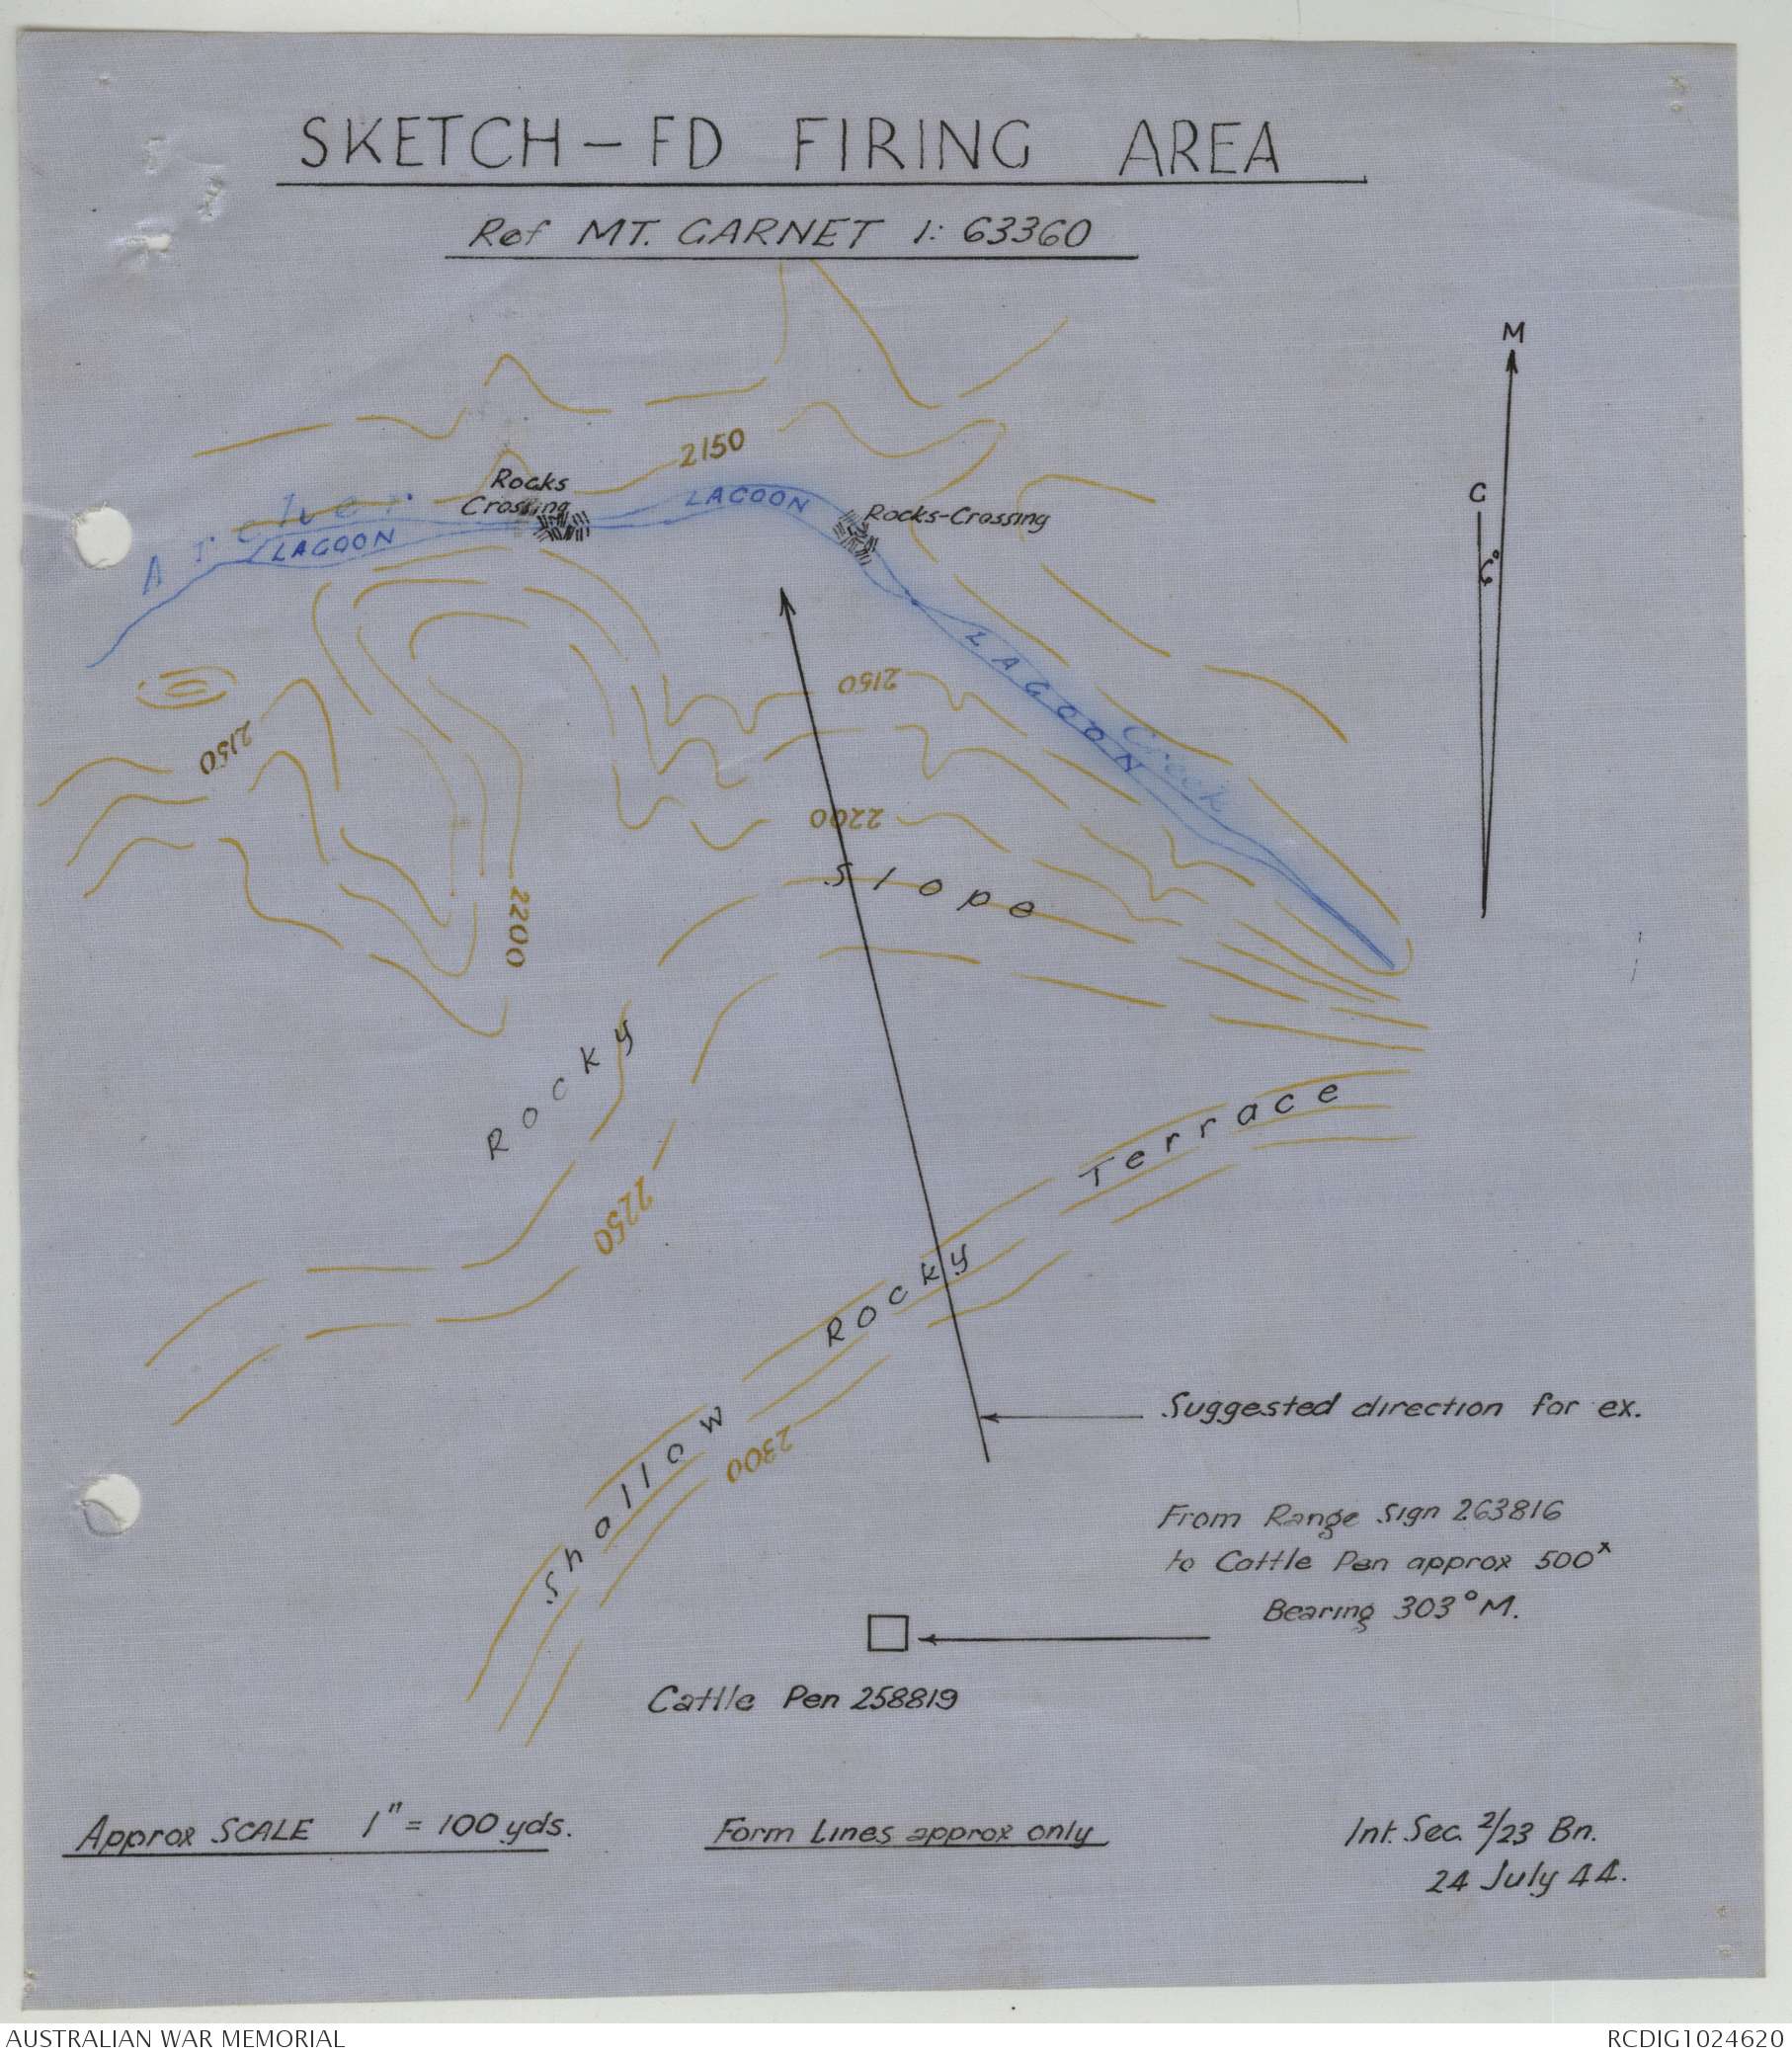 SKETCH – FD FIRING AREA
Ref MT. GARNET 1: 63360
M
G
6°
2150
Rocks
Crossing
Archer
LAGOON
LAGOON
Rocks-Crossing
LAGOON
Creek
2150
2150
2200
2200
Rocky Slope
2250
Shallow Rocky Terrace
2300
Suggested direction for ex.
From Range Sign 263816
to Cattle Pen approx 500ˣ
Bearing 303° M.
Cattle Pen 258819
Approx SCALE 1" = 100 yds.
Form Lines approx only
Int. Sec. 2/23 Bn.
24 July 44.
AUSTRALIAN WAR MEMORIAL
RCDIG1024620